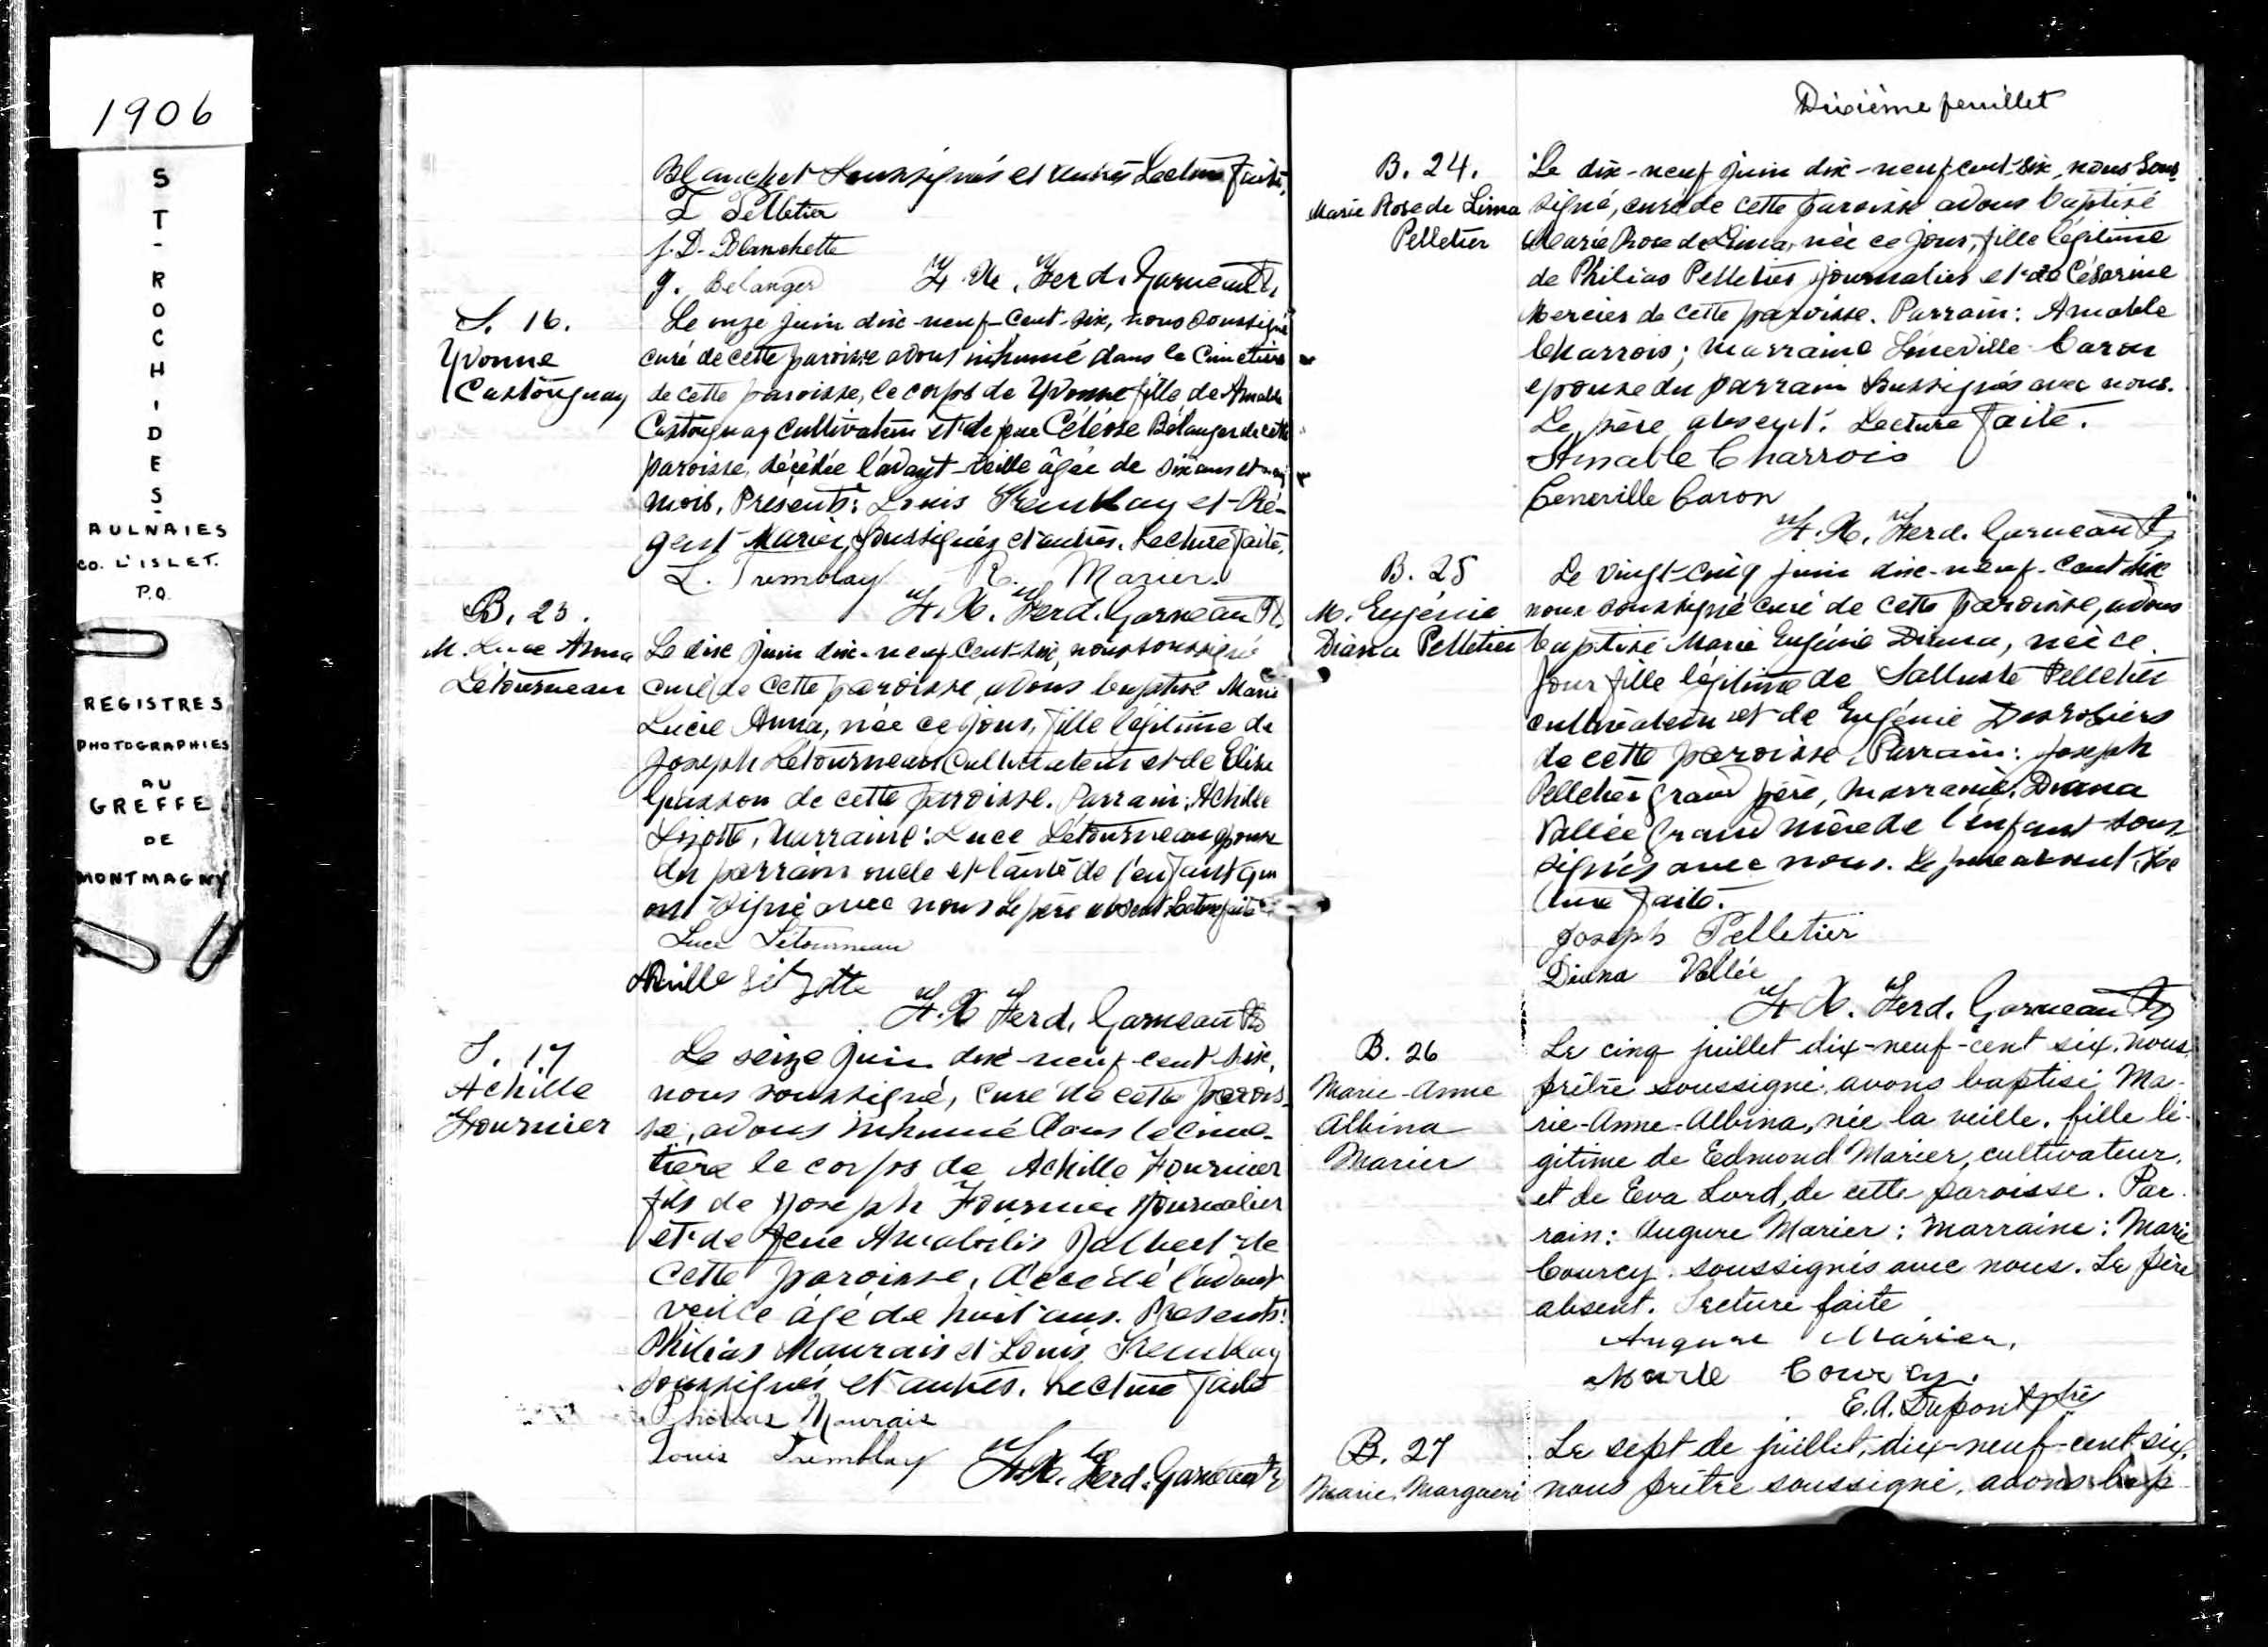 1906
ST-ROCH-DES-
AULNAIES
CO. L'ISLET.
P.Q.
REGISTRES
PHOTOGRAPHIES
AU
GREFFE
DE
MONTMAGNY
Blanchet Soussignés et autres Lecture faite,
T Pelletier
J. D. Blanchette
J. Belanger
F. X. Ferd. Garneau Ptr
S. 16.
Yvonne
Castonguay
Le onze juin dix-neuf-cent-six, nous soussigné
curé de cette paroisse avons inhumé dans le Cimetière
de cette paroisse, le corps de Yvonne fille de Amable
Castonguay cultivateur et de feue Bélanger de cette
paroisse, décédée l'avant-veille âgée de six ans et
mois. Présents: Louis Tremblay et Ré-
gent Marier, Soussignés et autres. Lecture faite.
L. Tremblay R. Marier.
F. X. Ferd. Garneau Ptr
B. 23.
M. Luce Anna
Létourneau
Le dix juin dix-neuf cent-six, nous soussigné
curé de cette paroisse, avons baptisé Marie
Lucie Anna, née ce jour, fille légitime de
Joseph Létourneau Cultivateur et de Elise
Gasson de cette paroisse. Parrain: Achille
Lizotte, Marraine: Luce Létourneau épouse
du parrain oncle et tante de l'enfant qui
ont signé avec nous Le père absent Lecture faite
Luce Létourneau
Achille Lizotte
F. X Ferd. Garneau Ptr
S. 17
Achille
Fournier
Le seize juin dix-neuf-cent-six,
nous soussigné, curé de cette parois-
se, avons inhumé dans le cime-
tière le corps de Achille Fournier
fils de Joseph Fournier Journalier
et de feue Amabilis Jalbert de
cette paroisse, décédé l'avant
veille âgé de huit ans. Présents:
Philias Maurais et Louis Tremblay
soussignés et autres. Lecture faite
Philias Maurais
Louis Tremblay
F. X. Ferd. Garneau Ptr
Dixième feuillet
B. 24.
Marie Rose de Lima
Pelletier
Le dix-neuf juin dix-neuf cent-six, nous Sous-
signé, curé de cette paroisse avons baptisé
Marie Rose de Lima, née ce jour, fille légitime
de Philias Pelletier journalier et de Césarine
Mercier de cette paroisse. Parrain: Amable
Charrois; marraine Caron
épouse du parrain soussignés avec nous.
Le père absent. Lecture faite.
Amable Charrois
Caron
F. X. Ferd. Garneau Ptr
B. 25
M. Eugénie
Diana Pelletier
Le vingt-cinq juin dix-neuf-cent six
nous soussigné curé de cette paroisse, avons
baptisé Marie Eugénie Diana, née ce
jour fille légitime de Salluste Pelletier
cultivateur et de Eugénie Desrosiers
de cette paroisse. Parrain: Joseph
Pelletier grand père, marraine, Diana
Vallée Grand mère de l'enfant sous-
signés avec nous. Le père absent. Lec
ture faite.
Joseph Pelletier
Diana Vallée
F. X. Ferd. Garneau Ptr
B. 26
Marie-Anne
Albina
Marier
Le cinq juillet dix-neuf-cent six, nous
prêtre soussigné, avons baptisé Ma-
rie-Anne-Albina, née la veille, fille lé-
gitime de Edmond Marier, cultivateur,
et de Eva Lord, de cette paroisse. Par-
rain: Augure Marier; Marraine: Marie
Courcy, soussignés avec nous. Le père
absent. Lecture faite
Augure Marier,
Marie Courcy.
E. A. Dupont Ptre
B. 27
Marie, Margueri
Le sept de juillet, dix-neuf-cent six,
nous prêtre soussigné, avons bap